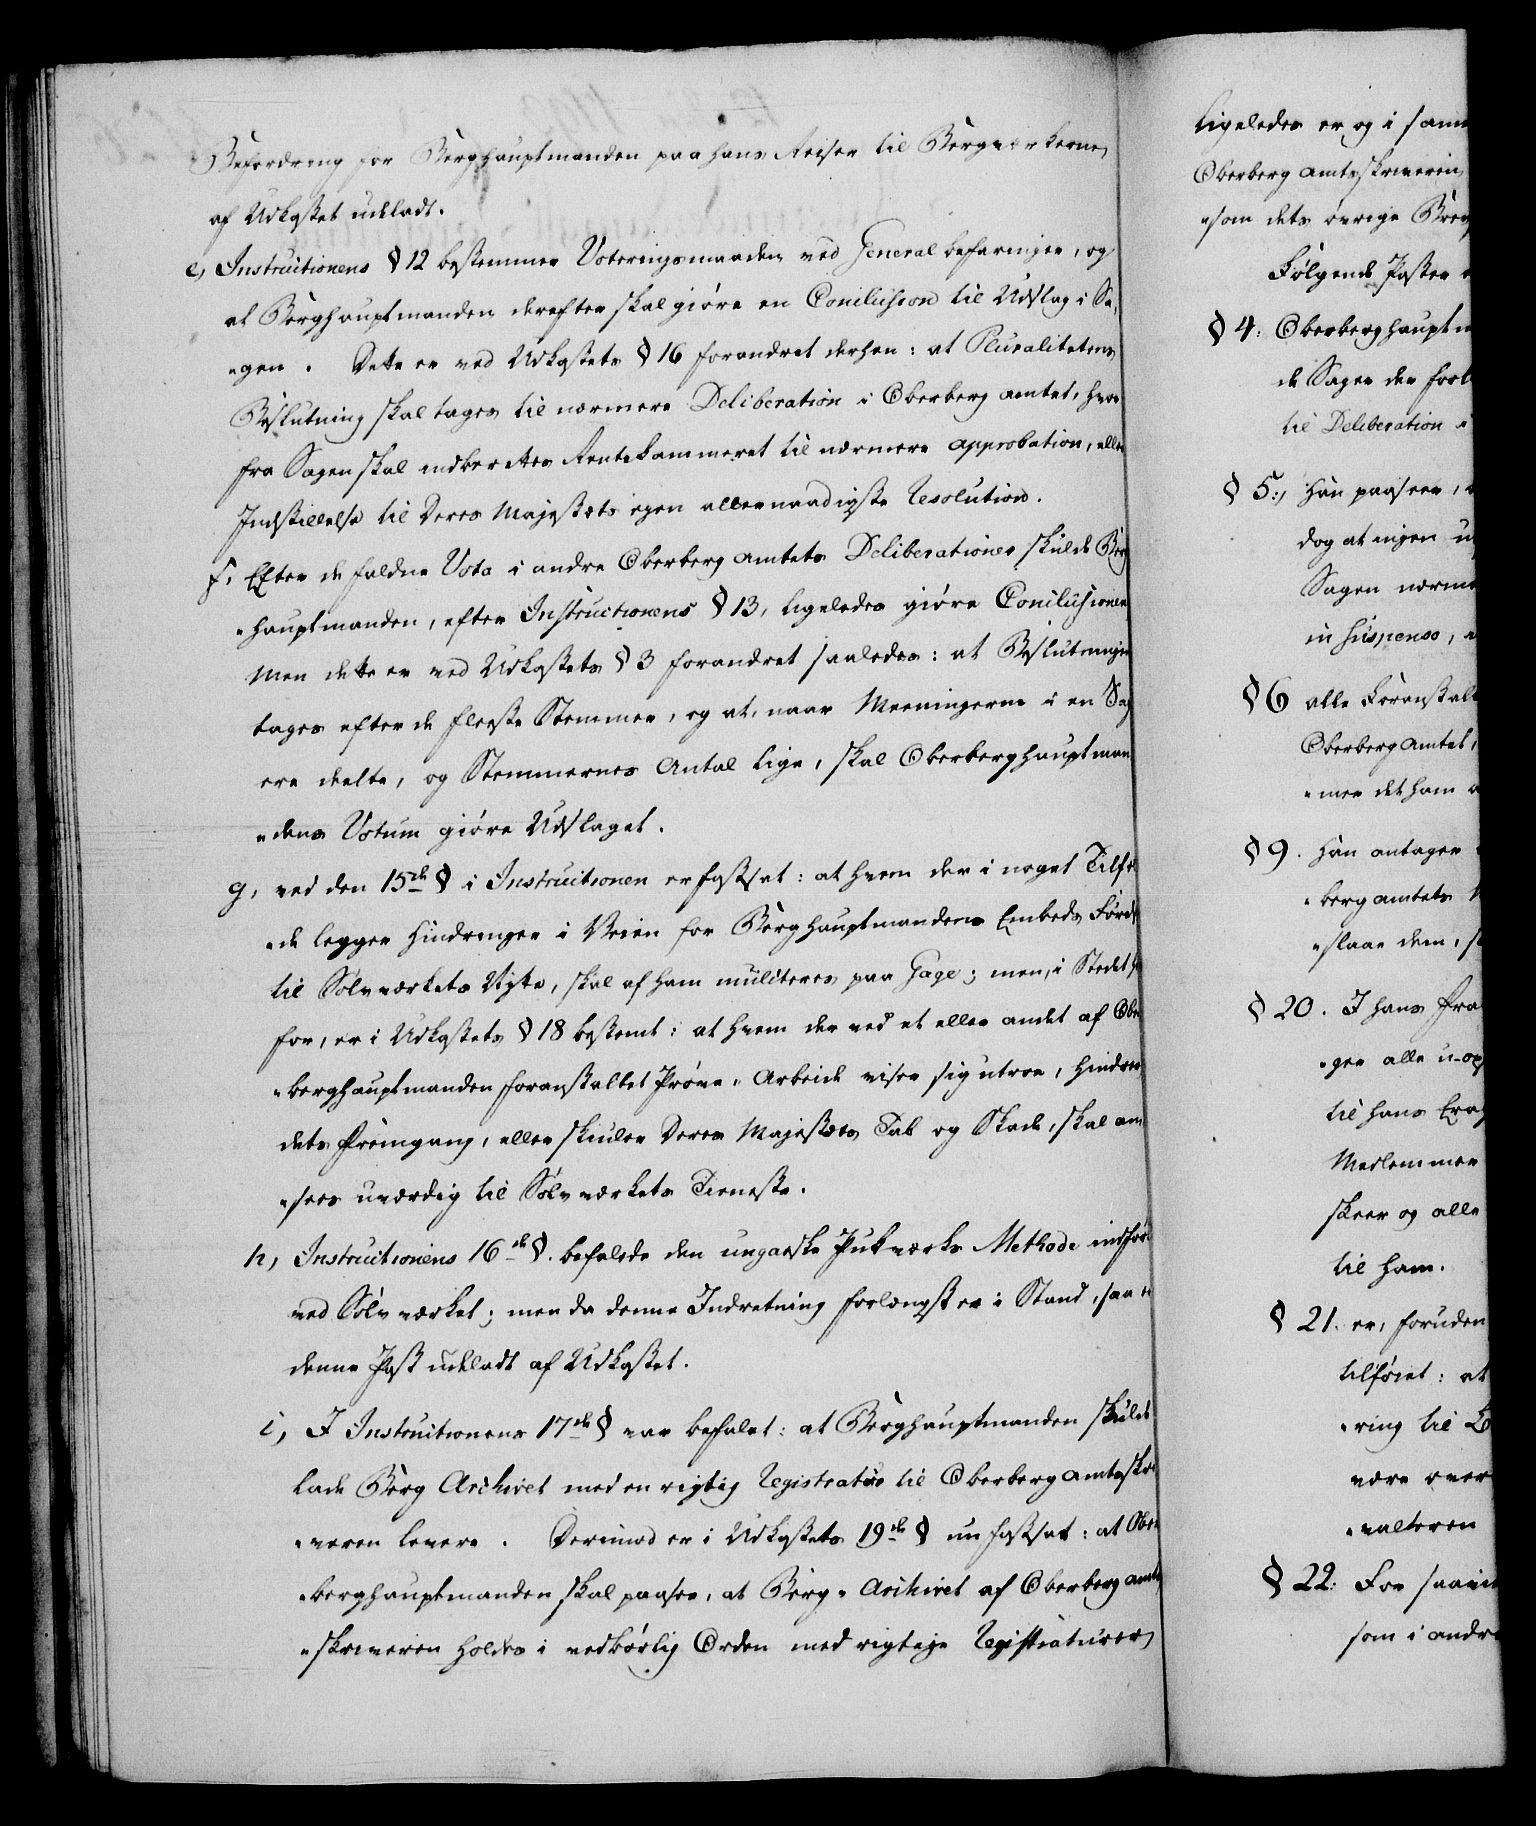 Befordring for Berghauptmanden paa hans Reiser til Bergværkerne,
af Udkastet udeladt.
e, Instructionens § 12 bestemmer Voteringsmaaden ved General befaringer, og
at Berghauptmanden derefter skal giøre en Conclusion til Udslag i Sa-
"gen. Dette er ved Udkastets § 16 forandret derhen: at Pluralitetens
Beslutning skal tages til nærmere Deliberation i Oberberg amtet, hvor
fra Sagen skal indberettes Rentekammeret til nærmere approbation, eller
Indstillelse til Deres Majestæts egen allernaadigste Resolution.
f, Efter de faldne Vota i andre Oberberg amtets Deliberationer skulde Berg
"hauptmanden, efter Instructionens § 13, ligeledes giøre Conclusionen
Men dette er ved Udkastets § 3 forandret saaledes: at Beslutningen
tages efter de fleeste Stemmer, og at, naar Meeningerne i en Sag
ere deelte, og Stemmernes Antal lige, skal Oberberghauptman
"dens Votum giøre Udslaget.
g, ved den 15de § i Instructionen er fastsat: at hvem der i noget Tilfæl
"de legger Hindringer i Veien for Berghauptmandens Embeds Førelse
til Sølvværkets Nytte, skal af ham mulcteres paa Gage; men, i Stedet her
for, er i Udkastets § 18 bestemt: at hvem der ved et eller andet af Ober
"berghauptmanden foranstaltet Prøve-Arbeide viser sig utroe, hindrer
dets Fremgang, eller skiuler Deres Majestæts Tab og Skade, skal an
"sees uværdig til Sølvværkets Tieneste.
h, Instructionens 16de §. befalede den ungarske Pukværks Methode indført
ved Sølvværket; men da denne Indretning forlængst er i Stand, saa er
denne Post udeladt af Udkastet.
i, I Instructionens 17de § var befalet: at Berghauptmanden skulde
lade Berg Archivet med en rigtig Registratur til Oberberg amtsskri
"veren levere. Derimod er i Udkastets 19de § nu fastsat: at Ober
"berghauptmanden skal paasee, at Berg-Archivet af Oberberg amts
"skriveren holdes i vedbørlig Orden med rigtige Registraturer
Ligeledes er og i sam
Oberberg amtsskriveren
"som dets øvrige
Følgende Poster
§ 4: Oberberghauptm
de Sager der forl
til Deliberation i
§ 5., han paaseer,
dog at ingen u
Sagen nærme
in suspenso,
§ 6 alle Foranstalt
Oberberg amtet,
"mer det ham
§ 9. han antager
"berg amtets
"slaar dem, s
§ 20. I hans Fra
"ger alle u-op
til hans
Medlemmer
skeer og alle
til ham.
§ 21. er, foruden
tilføiet: at
"ring til
være over
"valteren
§ 22: For saavit
som i andre